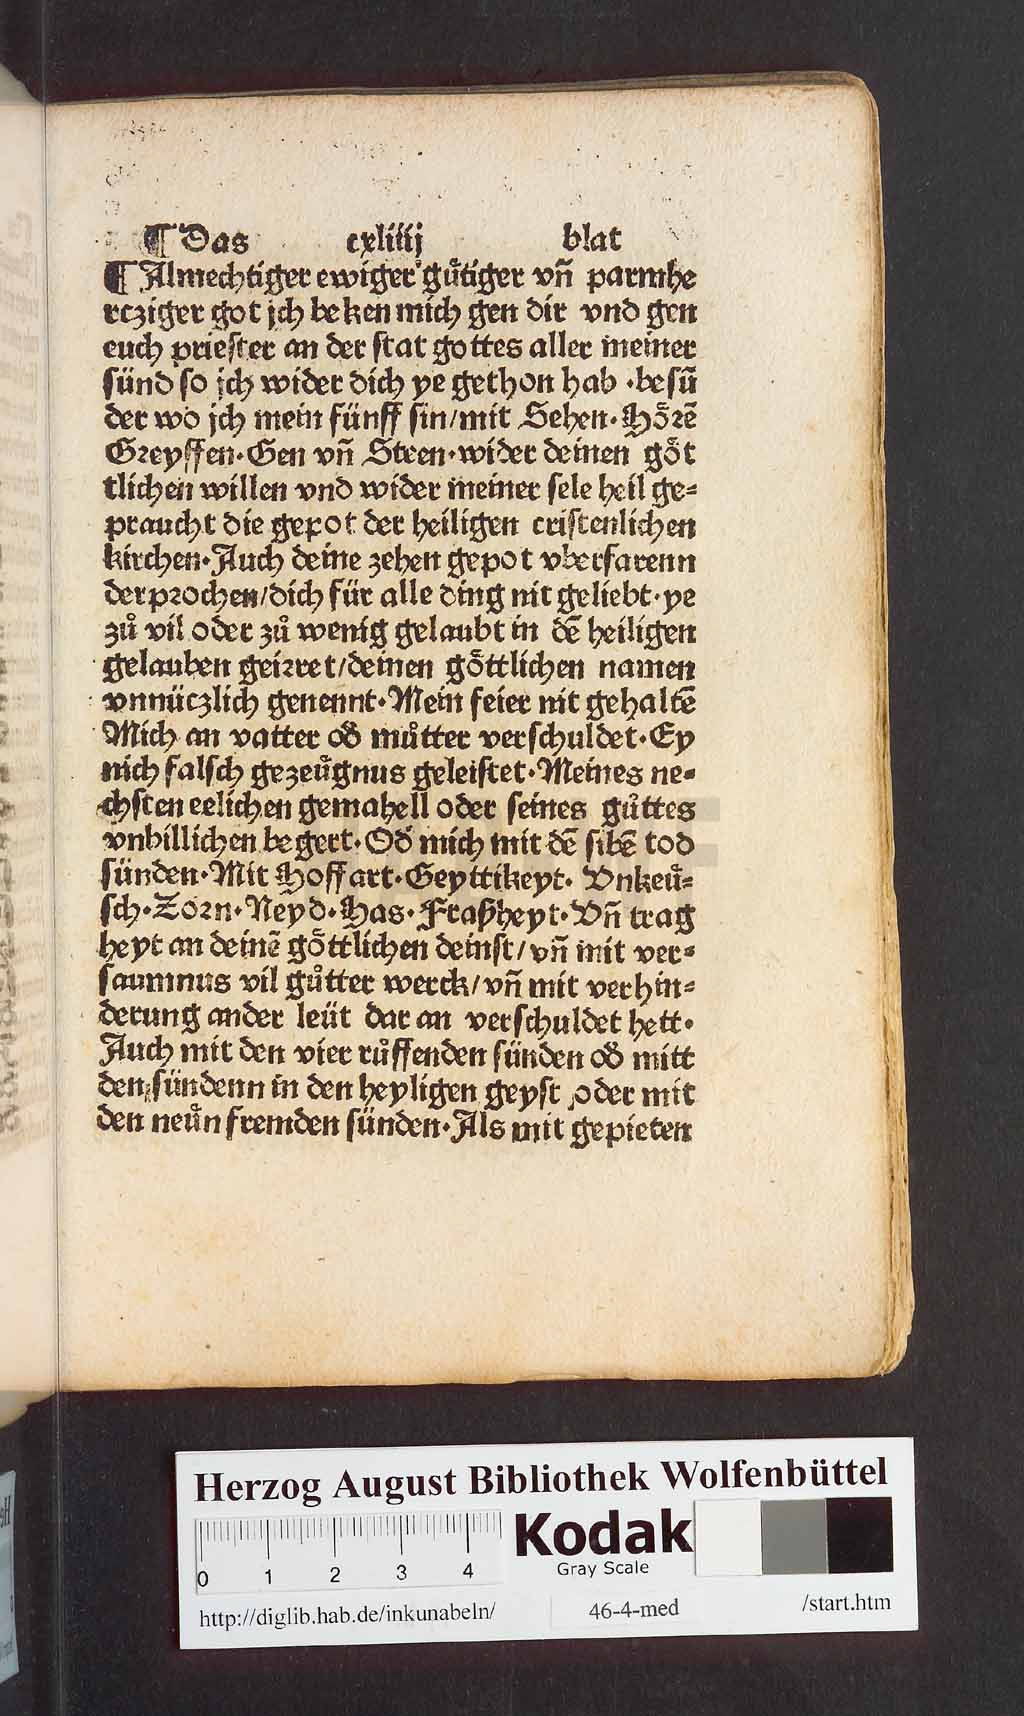 ¶ Das cxliiij blat
¶ Almechtiger ewiger gu̍tiger vn̄ parmhe
rcziger got jch beken mich gen dir vnd gen
euch priester an der stat gottes aller meiner
sünd so jch wider dich ye gethon hab ·besū
der wo jch mein fünff sin/mit Sehen·Hörē
Greyffen·Gen vn̄ Steen·wider deinen göt
tlichen willen vnd wider meiner sele heil ge⸗
praucht die gepot der heiligen cristenlichen
kirchen·Auch deine zehen gepot vberfarenn
derprochen/dich für alle ding nit geliebt·ye
zů vil oder zů wenig gelaubt in dē heiligen
gelauben geirret/deinen göttlichen namen
vnnüczlich genennt·Mein feier nit gehaltē
Mich an vatter od̕ můtter verschuldet·Ey
nich falsch gezeügnus geleistet·Meines ne⸗
chsten eelichen gemahell oder seines gůttes
vnbillichen begert·Od̕ mich mit dē sibē tod
sünden·Mit Hoffart·Geyttikeyt· Vnkeü⸗
sch·Zorn·Neyd·Has·Fraßheyt·Vn̄ trag
heyt an deinē göttlichen deinst/vn̄ mit ver⸗
saumnus vil gůtter werck/vn̄ mit verhin⸗
derung ander leüt dar an verschuldet hett·
Auch mit den vier růffenden sünden od̕ mitt
den sündenn in den heyligen geyst oder mit
den neün fremden sünden·Als mit gepieten
Herzog August Bibliothek Wolfenbüttel
0 1 2 3 4
Kodak
Gray Scale
http://diglib.hab.de/inkunabeln/ 46-4-med /start.htm